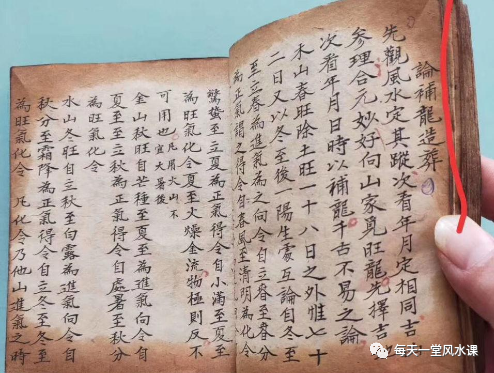 論補龍造葬
先觀風水定其蹤次看年月定相同吉
參理合元妙好向山家覓旺龍先擇吉
次看年月日時以補龍千古不易之論
木山春旺除土旺一十八日之外惟七十
二日又以冬至後一陽生互論自冬至
至立春為進氣為之向令自立春至春分
為正氣謂之得令自春風至清明為化令
驚蟄至立夏為正氣得令自小滿至夏至
為旺氣化令夏至火燥金流物極則反不
可用也 凡火山不宜大暑後
金山秋旺自芒種至夏至為進氣向令自
夏至至立秋為正氣得令自處暑至秋分
為旺氣化令
水山冬旺自立秋至白露為進氣向令自
秋分至霜降為正氣得令自立冬至冬至
為旺氣化令 凡化令乃他山進氣之時
每天一堂风水课